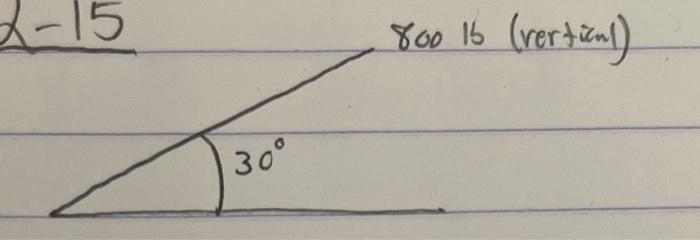 2-15
800 lb (vertical)
30°